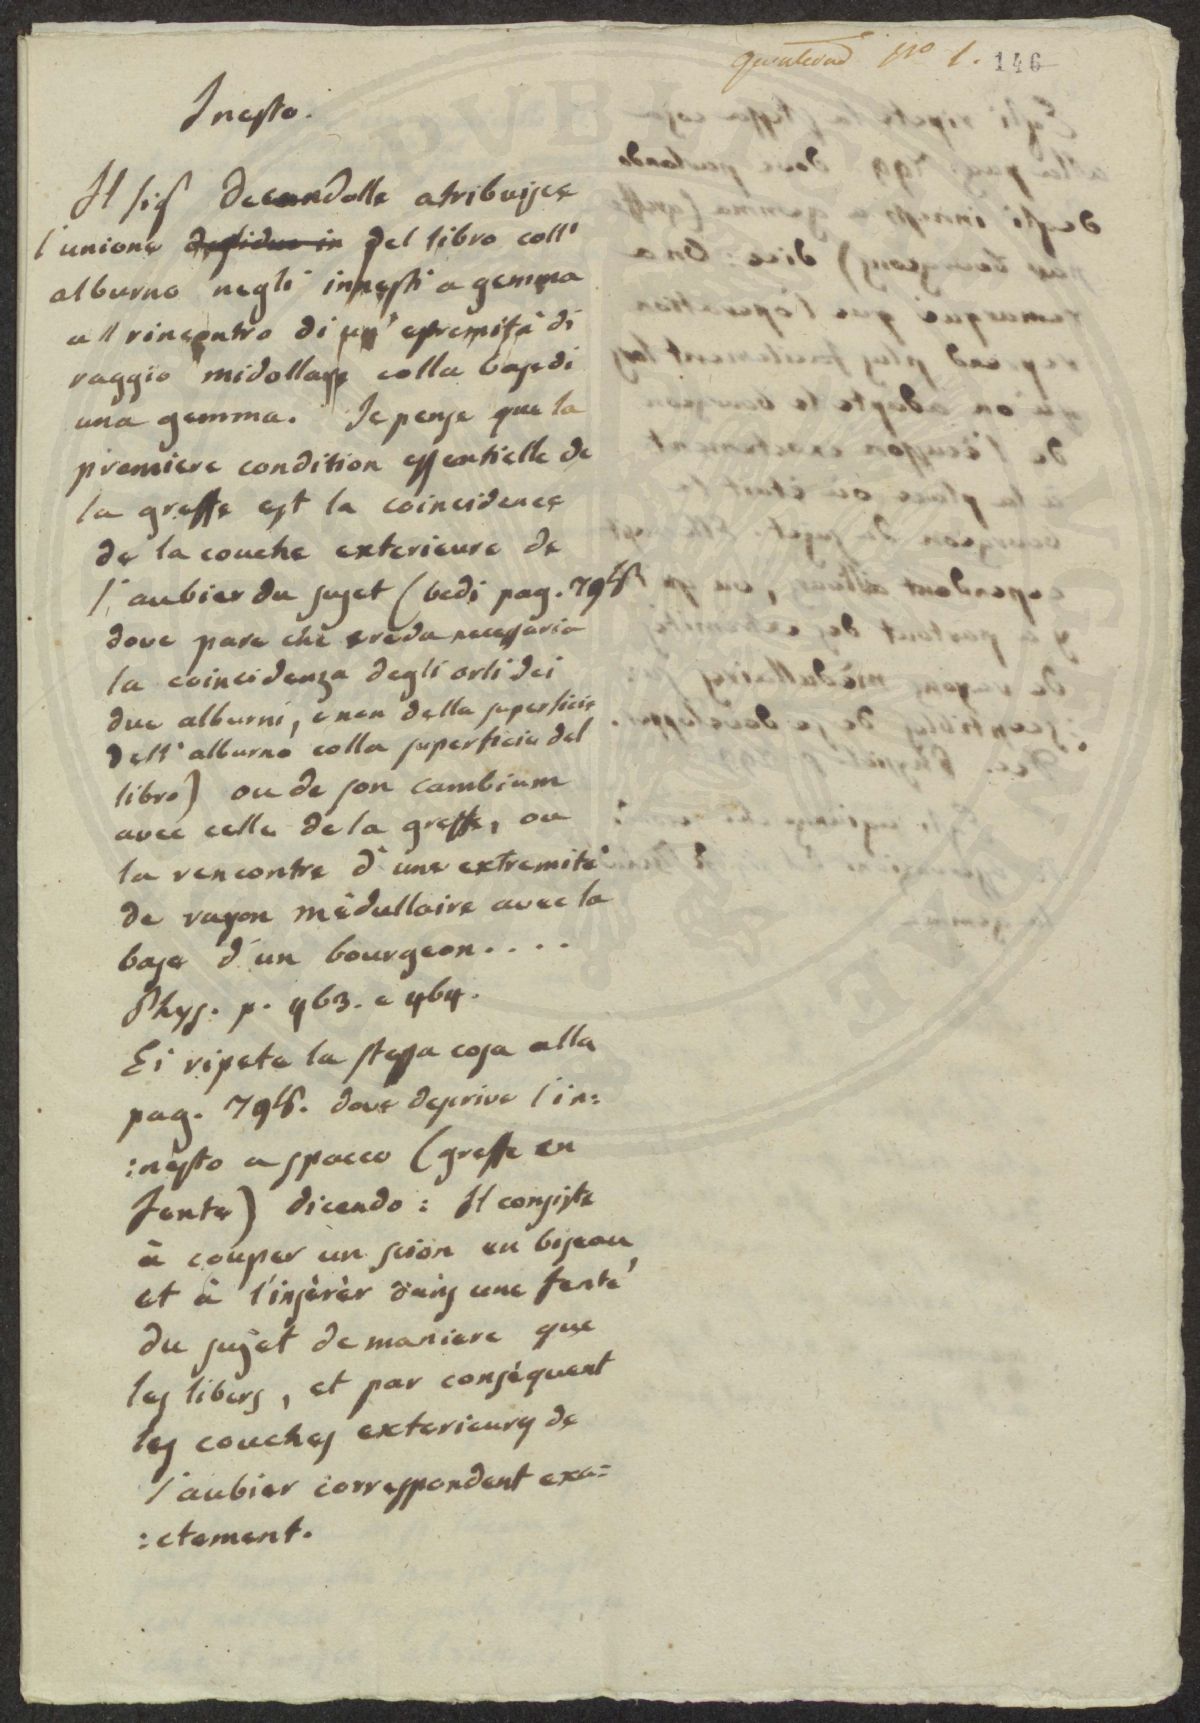 No 1. 146
Inesto.
Il sig Decandolle atribuisce
l'unione del libro coll'
alburno negli innesti a gemma
all rincontro di un' estremità di
raggio midollare colla base di
una gemma. Je pense que la
premiere condition essentielle de
la greffe est la coincidence
de la couche exterieure de
l'aubier du sujet (vedi pag. 795
dove pare che creda necessaria
la coincidenza degli orli dei
due alburni, e non della superficie
dell'alburno colla superficie del
libro) ou de son cambium
avec celle de la greffe, ou
la rencontre d'une extremité
de rayon mèdullaire avec la
base d'un bourgeon....
Phys. p. 463. e 464.
Ei ripete la stessa cosa alla
pag. 795. dove descrive l'in:
:nesto a spacco (greffe en
fente) dicendo: Il consiste
à couper un scion en biseau
et à l'insèrèr dans une fente
du sujet de maniere que
les libers, et par conséquent
les couches exterieures de
l'aubier correspondent exa:
:ctement.